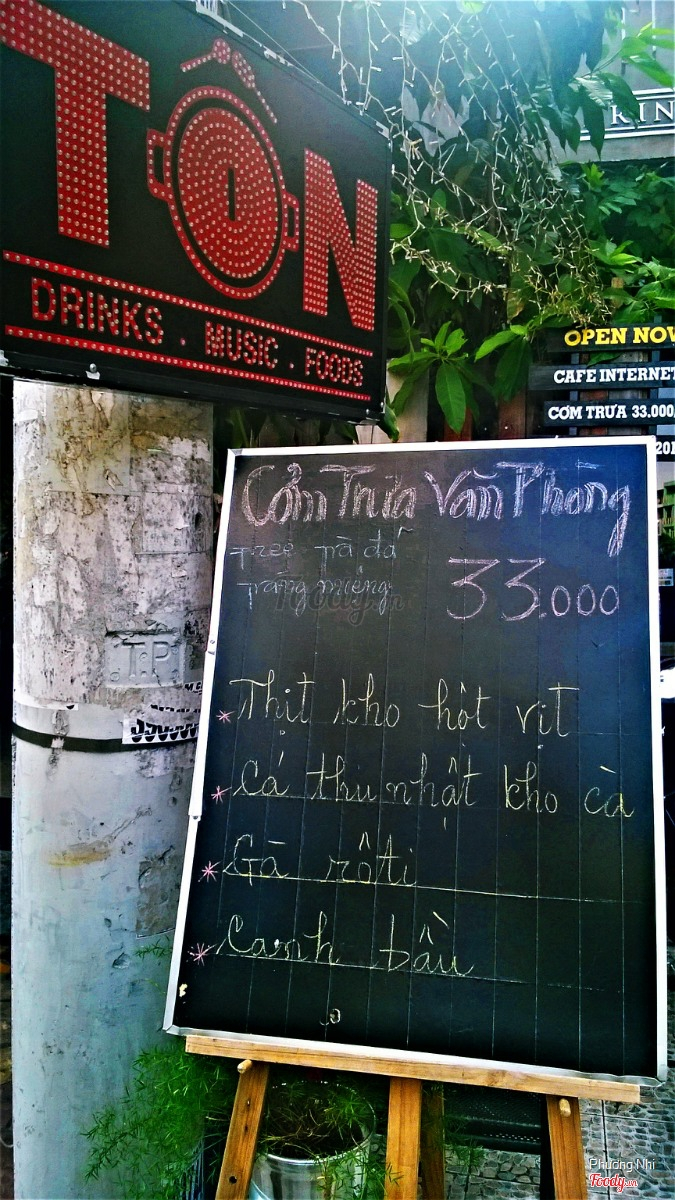 TÔN
DRINKS . MUSIC . FOODS
RIN
OPEN NOW
CAFE INTERNET
CƠM TRƯA 33.000
Cơm Trưa Văn Phòng
Free trà đá
tráng miệng
33.000
Foody.vn
* Thịt kho hột vịt
* Cá thu nhật kho cà
* Gà rôti
* Canh bầu
T.P
Phương Nhi
Foody.vn